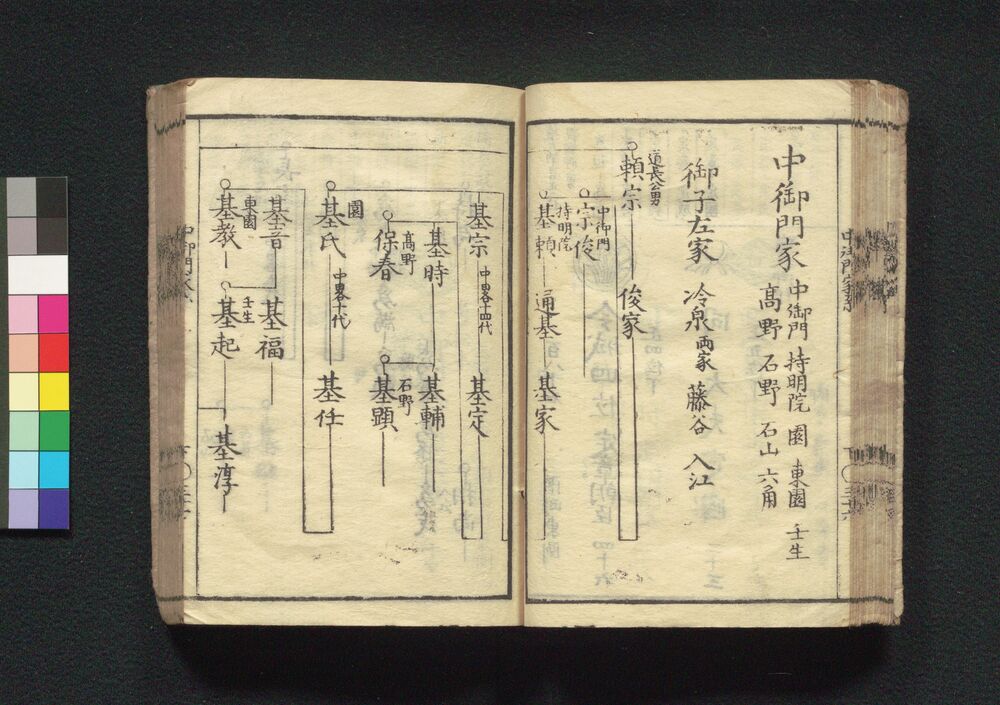 中御門家
中御門 持明院 園 東園 壬生
髙野 石野 石山 六角
御子左家 冷泉両家 藤谷 入江
道長公男
頼宗 俊家
中御門
宗俊
持明院
基頼 通基 基家
基宗 中畧十四代 基定
基時 基輔
髙野
保春
石野
基顕
園
基氏 中畧十代 基任
基音 基福
東園
基教
壬生
基起
基淳